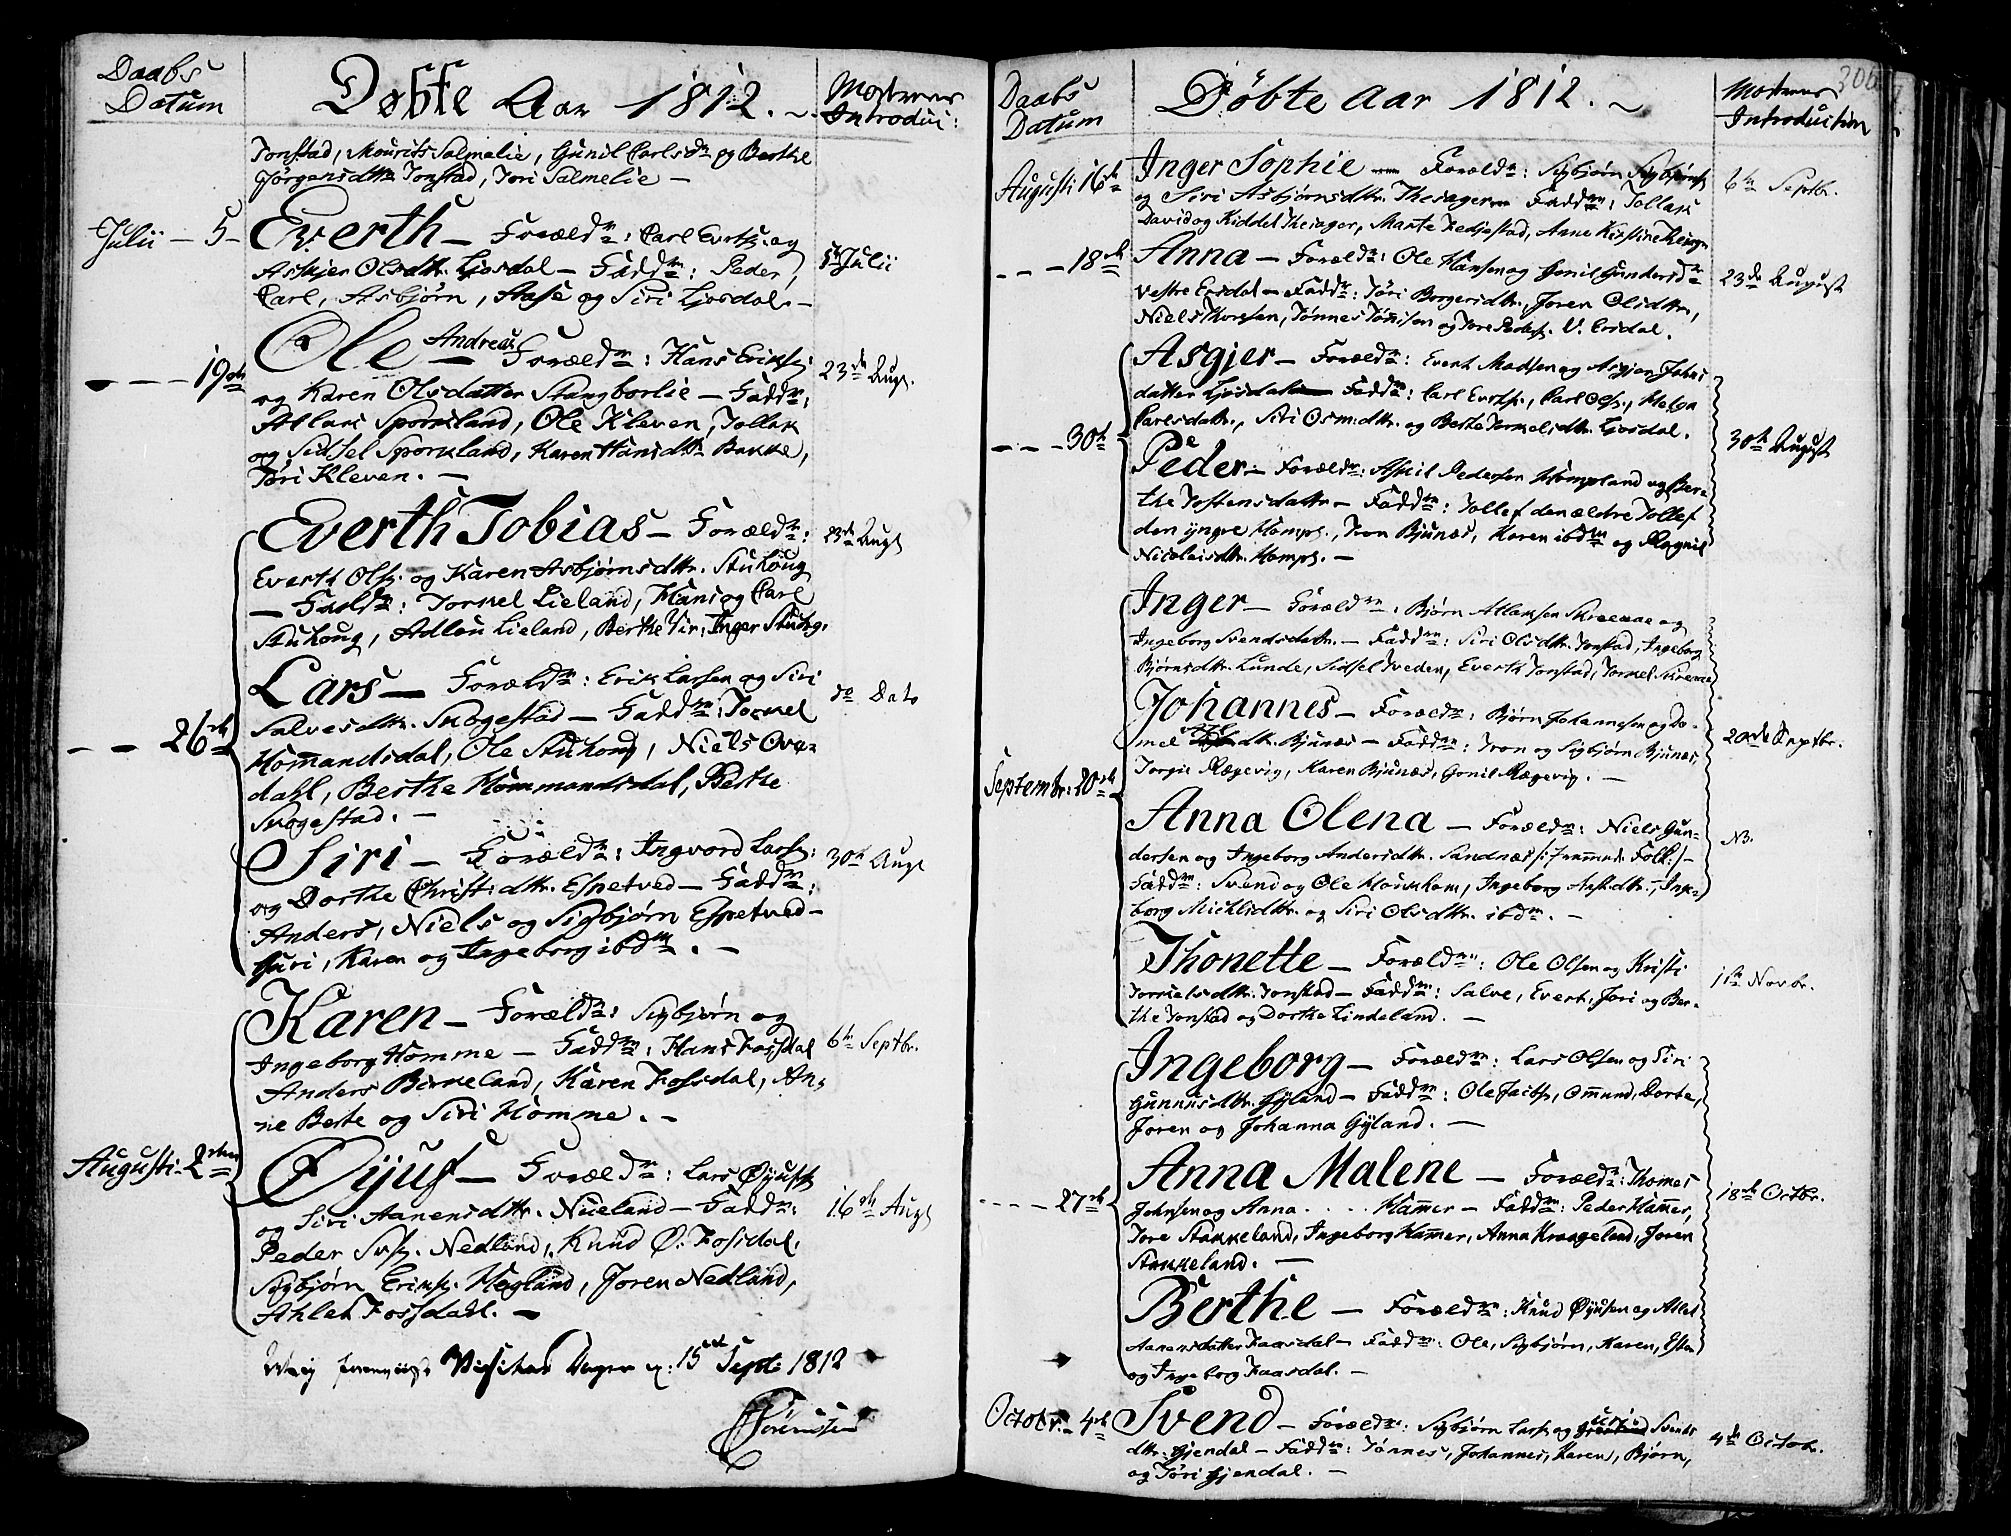 Daabs
Datum
Døbte Aar 1812.
Mødrenes
Introduc:
Tonstad, Mourits Salmelie, Gunil Carlsdtr og Berthe
Jørgensdttr Tonstad, Tori Salmelie —
Julii — 5 —
Everth — Foræld: Carl Evertss. og
Askjer Olsdttr. Liosdal — Fadd: Peder,
Carl, Asbjørn, Aase og Siri Liosdal. —
5te Julii
— — — 19de
Ole Andreas — Foræld: Hans Eriks:
og Karen Olsdatter Stangborlie — Fadd:
Atlari Sporkland, Ole Kleven, Tollak
og Sidsel Sporkland, Karen Hansdttr Bakke,
Tori Kleven. —
23de Aug.
Everth Tobias — Foræld:
Everth Olss. og Karen Asbjørnsdttr. Stuhoug
— Fadd: Torkel Lieland, Hans og Carl
Stuhoug, Adlou Lieland, Berthe Sir: Inger Stuhg.
23de Augt
— — 26de
Lars — Foræld: Erik Larsen og Siri
Salvesdttr. Skogestad — Fadd: Torkel
Hommandsdal, Ole Stuhoug, Niels Ovre-
dahl, Berthe Hommandsdal, Berthe
Skogestad. —
do Dato
Siri — Foræld: Ingvord Larss:
og Dorthe Christ:dttr. Espetved — Fadd:
Anders, Niels og Sigbjørn Espetved —
Guri, Karen og Ingeborg ibdm. —
30te Augt
Karen — Foræld: Sigbjørn og
Ingeborg Homme — Fadd: Hans Fossdal
Anders Birkeland, Karen Fossdal, An-
ne Berte og Siri Homme. —
6te Septbr.
Augusti — 2den
Øyuf — Foræld: Lars Øyufs
og Siri Aanensdttr. Nueland — Fadd:
Peder Svs. Nedland, Knud Ø. Fosdal,
Sigbjørn Eriks. Hegland, Joren Nedland,
Ahlet Fossdal. —
16de Augt
Visitas Dagen 15 Sept: 1812
Sørenssen
Daabs
Datum
Døbte Aar 1812.
Mødrenes
Introduction
306
Augusti 16de
Inger Sophie — Foræld: Sigbjørn Sigbjørns.
og Siri Asbjørnsdttr. Thesager — Fadd: Tollak
David og Kiddel Thesager, Marte Kedjestad, Anne Kirstine Thesagr
6te Septbr.
— — — 18de
Anna — Foræld: Ole Hansen og Gunil Gundersdtr
Vestre Ersdal — Fadd: Tori Borgersdttr., Joren Olsdttr.,
Niels Thorsen, Tønnes Tønisen og Tore Peders. V. Ersdal.
23de August
— — — 30te
Asgjer — Foræld: Evert Madsen og Asgjer Johns
datter Liosdal — Fadd: Carl Evertss., Carl Olss., Helga
Carlsdattr., Siri Osm:dttr. og Berte Torkelsdttr. Liosdal.
Peder — Foræld: Askil Pedersen Hompland og Ber-
the Tostensdattr — Fadd: Tollef den ældre Tollef
den yngre Homps., Tron Bjunes, Karen ibdm og Ragnil
Nicolaisdttr. Homps. —
30te August
Inger — Foræld: Bjørn Atlaksen Skreaae og
Ingeborg Svendsdattr. — Fadd: Siri Olsdttr. Tonstad, Ingeborg
Bjørnsdttr. Lunde, Sidsel Tveden, Everth Tonstad, Torkel Skreaae
Septembr: 20de
Johannes — Foræld: Bjørn Johannesen og Do-
mel dttr. Bjunæs — Fadd: Tron og Sigbjørn Bjunæs,
Torgie Rægevig, Karen Bjunæs, Gonil Rægevig. —
20de Septbr.
Anna Olena — Foræld: Niels Gun-
dersen og Ingeborg Andersdttr. Sandnæs /: fremmede Folk :/ —
Fadd: Svend og Ole Houkhom, Ingeborg dttr., Inge-
borg Michlsdttr. og Siri Olsdttr. ibdm. —
NB.
Thonette — Foræld: Ole Olsen og Kristi
Torkelsdttr. Tonstad — Fadd: Salve, Evert, Jori og Ber-
the Tonstad og Dorthe Lindeland. —
1ste Novbr.
Ingeborg — Foræld: Lars Olsen og Siri
Gunnufsdttr. Gyland — Fadd: Ole Jacobs., Omund, Dorte,
Joren og Johanna Gyland. —
— — — 27de
Anna Malene — Foræld: Thomas
Johnsen og Anna . . . . Hammer — Fadd: Peder Hammer,
Tore Stakkeland, Ingeborg Hammer, Anna Kraageland, Joren
Stakkeland. —
18de Octbr.
Berthe — Foræld: Knud Øyufsen og Atlet
Aanensdatter Faasdal — Fadd: Ole, Sigbjørn, Karen, Esten
og Ingeborg Faasdal. —
Octobr. — 4de
Svend — Foræld: Sigbjørn Larss. og Guri Svends
dttr. Gjendal — Fadd: Tønnes, Johannes, Karen, Bjørn,
og Tori Gjendal. —
4de Octobr.